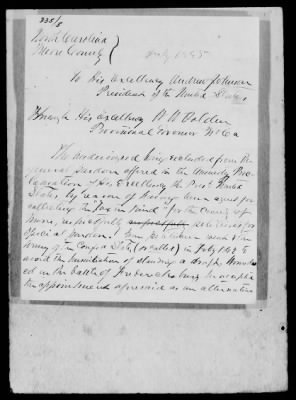 335/8
North Carolina
Moore County
July 1865
To His Excellency Andrew Johnson
President of the United States
Through His Excellency W W Holden
Provisional Governor N Ca
The undersigned being excluded from the
general pardon offered in the Amnesty Proc-
lamation of His Excellency the Prest United
States by reason of having been agent for
collecting the "Tax in Kind" for the County of
Moore, respectfully respectfully petitions for
special pardon. Your petitioner
Army of the Confed States (so called) in July 1862 to
avoid the humiliation of a draft,
ed in the battle of Fredericksburg
the appointment aforesaid as an alternative